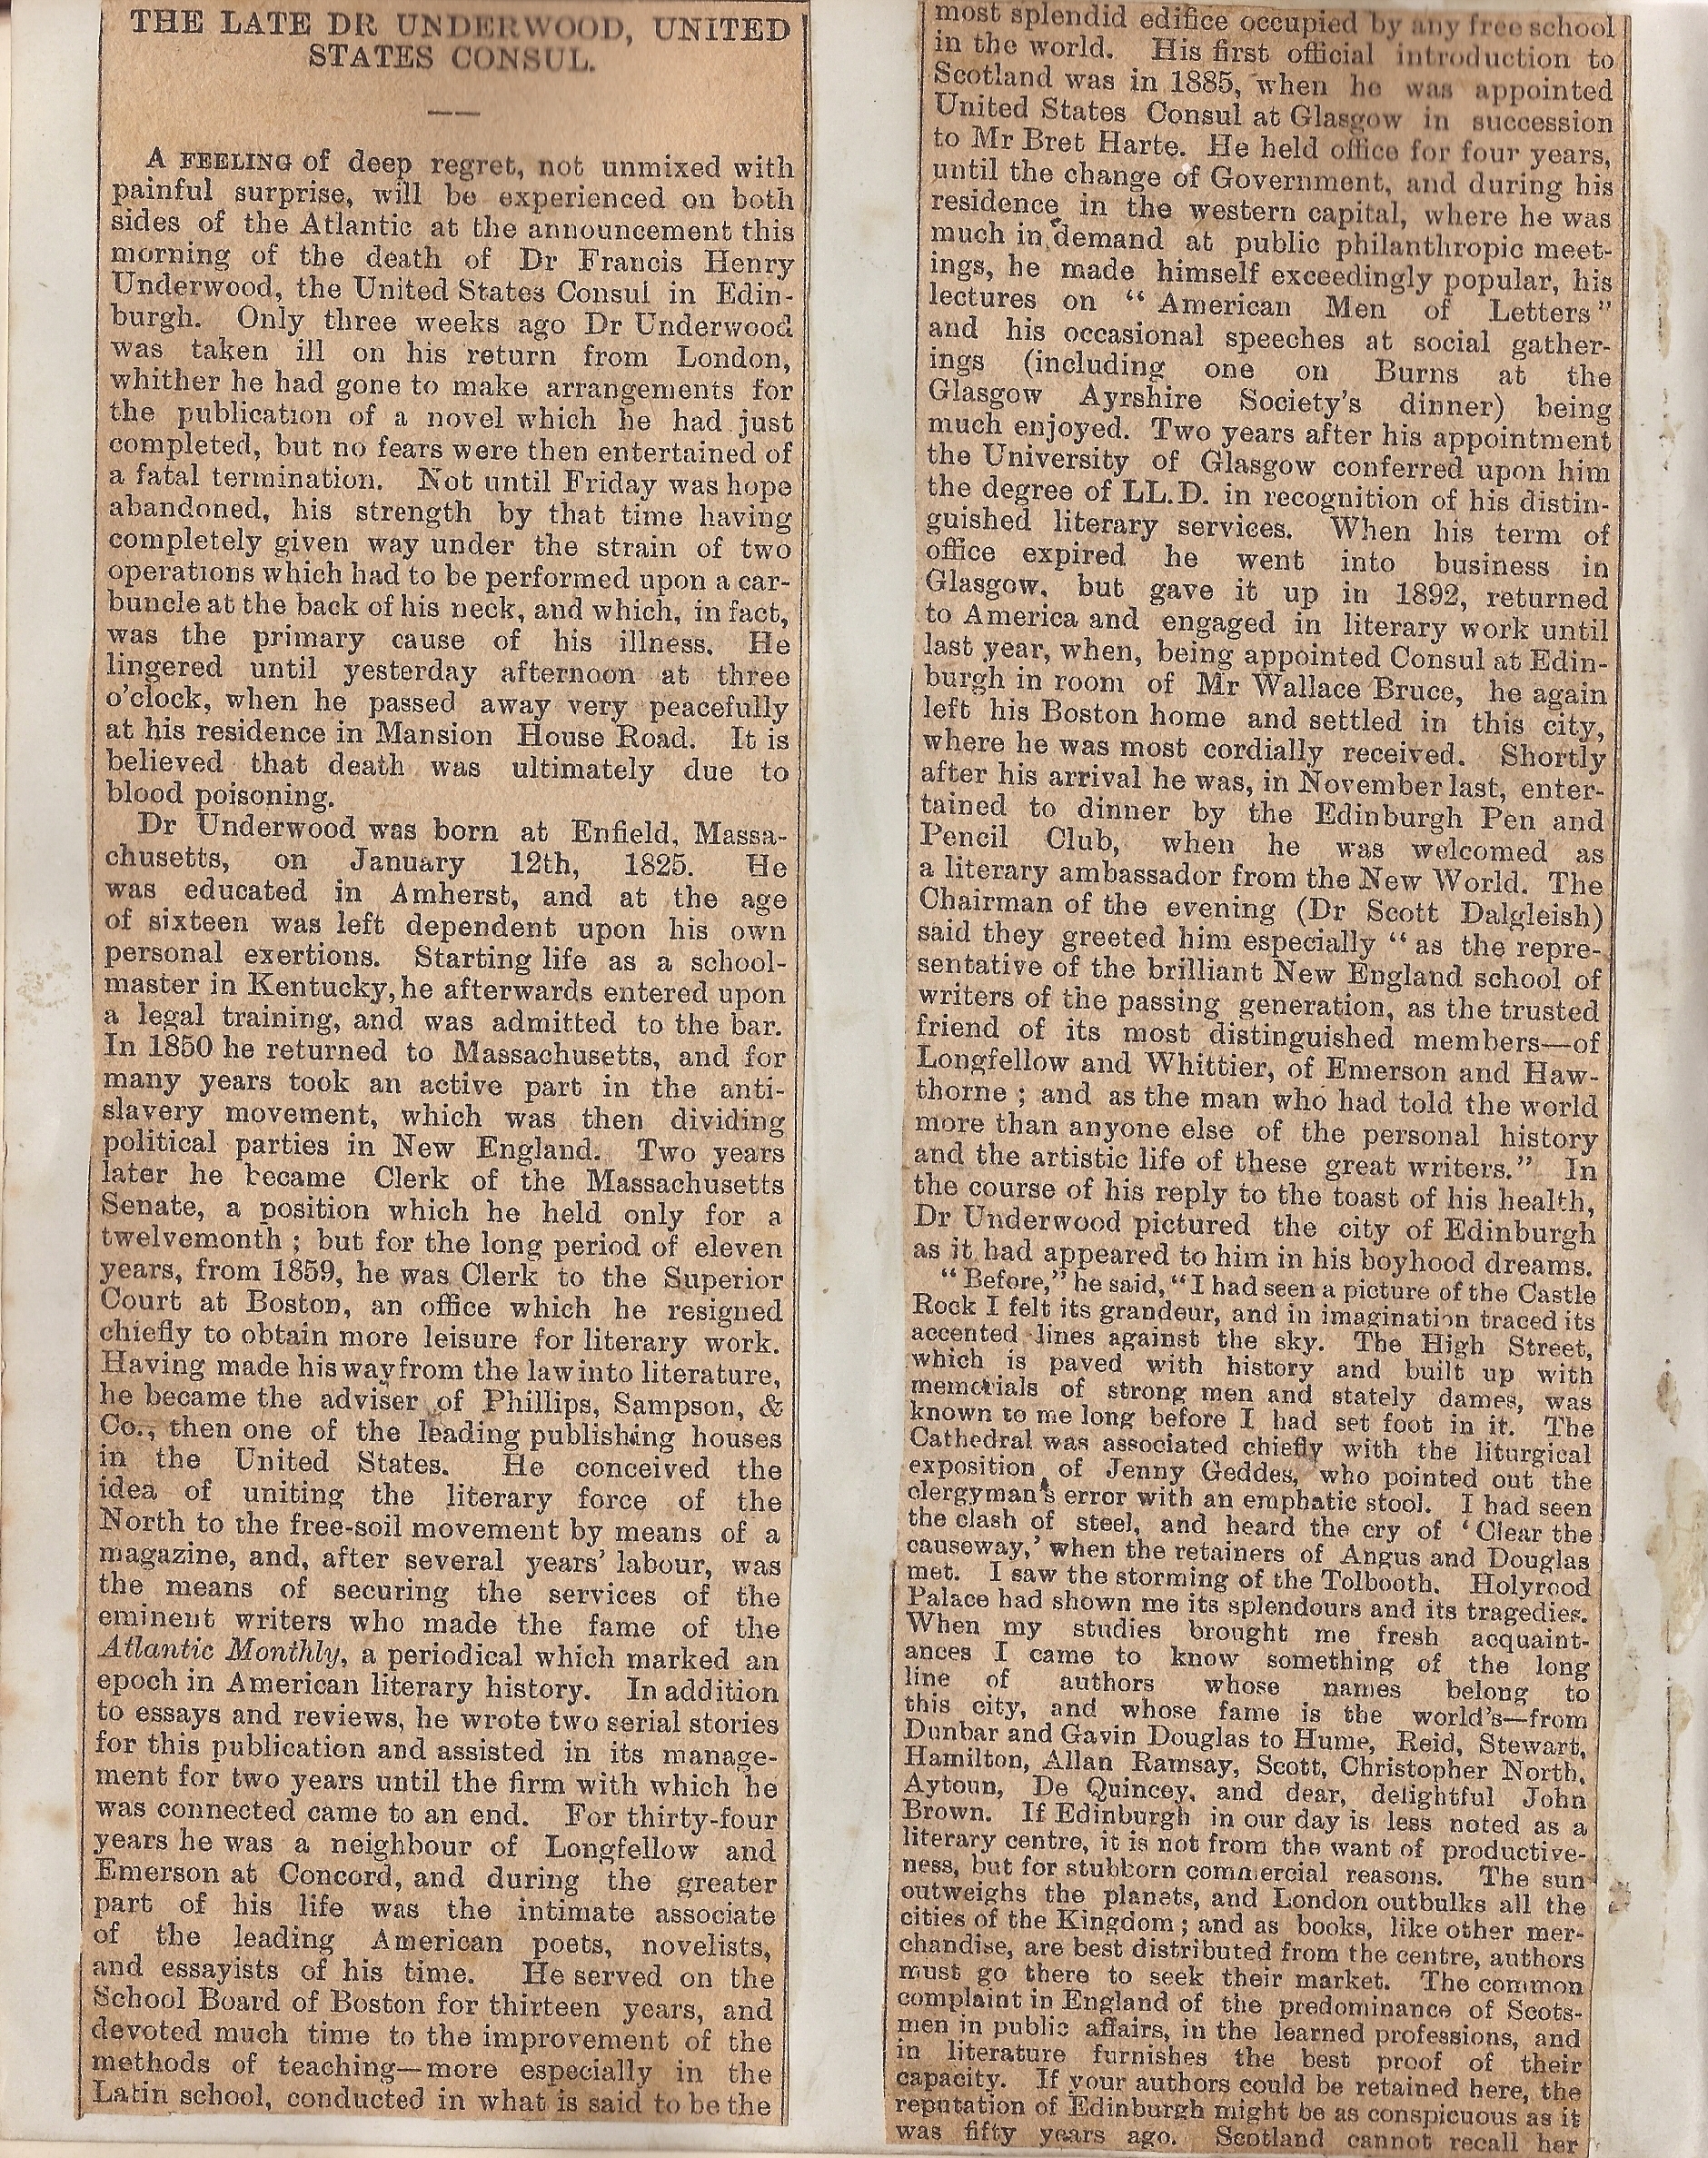 THE LATE DR UNDERWOOD, UNITED
STATES CONSUL.
A FEELING of deep regret, not unmixed with
painful surprise, will be experienced on both
sides of the Atlantic at the announcement this
morning of the death of Dr Francis Henry
Underwood, the United States Consul in Edin-
burgh. Only three weeks ago Dr Underwood
was taken ill on his return from London,
whither he had gone to make arrangements for
the publication of a novel which he had just
completed, but no fears were then entertained of
a fatal termination. Not until Friday was hope
abandoned, his strength by that time having
completely given way under the strain of two
operations which had to be performed upon a car-
buncle at the back of his neck, and which, in fact,
was the primary cause of his illness. He
lingered until yesterday afternoon at three
o'clock, when he passed away very peacefully
at his residence in Mansion House Road. It is
believed that death was ultimately due to
blood poisoning.
Dr Underwood was born at Enfield, Massa-
chusetts, on January 12th, 1825. He
was educated in Amherst, and at the age
of sixteen was left dependent upon his own
personal exertions. Starting life as a school-
master in Kentucky, he afterwards entered upon
a legal training, and was admitted to the bar.
In 1850 he returned to Massachusetts, and for
many years took an active part in the anti-
slavery movement, which was then dividing
political parties in New England. Two years
later he became Clerk of the Massachusetts
Senate, a position which he held only for a
twelvemonth; but for the long period of eleven
years, from 1859, he was Clerk to the Superior
Court at Boston, an office which he resigned
chiefly to obtain more leisure for literary work.
Having made his way from the law into literature,
he became the adviser of Phillips, Sampson, &
Co., then one of the leading publishing houses
in the United States. He conceived the
idea of uniting the literary force of the
North to the free-soil movement by means of a
magazine, and, after several years' labour, was
the means of securing the services of the
eminent writers who made the fame of the
Atlantic Monthly, a periodical which marked an
epoch in American literary history. In addition
to essays and reviews, he wrote two serial stories
for this publication and assisted in its manage-
ment for two years until the firm with which he
was connected came to an end. For thirty-four
years he was a neighbour of Longfellow and
Emerson at Concord, and during the greater
part of his life was the intimate associate
of the leading American poets, novelists,
and essayists of his time. He served on the
School Board of Boston for thirteen years, and
devoted much time to the improvement of the
methods of teaching—more especially in the
Latin school, conducted in what is said to be the
most splendid edifice occupied by any free school
in the world. His first official introduction to
Scotland was in 1885, when he was appointed
United States Consul at Glasgow in succession
to Mr Bret Harte. He held office for four years,
until the change of Government, and during his
residence in the western capital, where he was
much in demand at public philanthropic meet-
ings, he made himself exceedingly popular, his
lectures on "American Men of Letters"
and his occasional speeches at social gather-
ings (including one on Burns at the
Glasgow Ayrshire Society's dinner) being
much enjoyed. Two years after his appointment
the University of Glasgow conferred upon him
the degree of LL.D. in recognition of his distin-
guished literary services. When his term of
office expired he went into business in
Glasgow, but gave it up in 1892, returned
to America and engaged in literary work until
last year, when, being appointed Consul at Edin-
burgh in room of Mr Wallace Bruce, he again
left his Boston home and settled in this city,
where he was most cordially received. Shortly
after his arrival he was, in November last, enter-
tained to dinner by the Edinburgh Pen and
Pencil Club, when he was welcomed as
a literary ambassador from the New World. The
Chairman of the evening (Dr Scott Dalgleish)
said they greeted him especially "as the repre-
sentative of the brilliant New England school of
writers of the passing generation, as the trusted
friend of its most distinguished members—of
Longfellow and Whittier, of Emerson and Haw-
thorne; and as the man who had told the world
more than anyone else of the personal history
and the artistic life of these great writers." In
the course of his reply to the toast of his health,
Dr Underwood pictured the city of Edinburgh
as it had appeared to him in his boyhood dreams.
"Before," he said, "I had seen a picture of the Castle
Rock I felt its grandeur, and in imagination traced its
accented lines against the sky. The High Street,
which is paved with history and built up with
memorials of strong men and stately dames, was
known to me long before I had set foot in it. The
Cathedral was associated chiefly with the liturgical
exposition of Jenny Geddes, who pointed out the
clergyman's error with an emphatic stool. I had seen
the clash of steel, and heard the cry of 'Clear the
causeway,' when the retainers of Angus and Douglas
met. I saw the storming of the Tolbooth. Holyrood
Palace had shown me its splendours and its tragedies.
When my studies brought me fresh acquaint-
ances I came to know something of the long
line of authors whose names belong to
this city, and whose fame is the world's—from
Dunbar and Gavin Douglas to Hume, Reid, Stewart,
Hamilton, Allan Ramsay, Scott, Christopher North,
Aytoun, De Quincey, and dear, delightful John
Brown. If Edinburgh in our day is less noted as a
literary centre, it is not from the want of productive-
ness, but for stubborn commercial reasons. The sun
outweighs the planets, and London outbulks all the
cities of the Kingdom; and as books, like other mer-
chandise, are best distributed from the centre, authors
must go there to seek their market. The common
complaint in England of the predominance of Scots-
men in public affairs, in the learned professions, and
in literature furnishes the best proof of their
capacity. If your authors could be retained here, the
reputation of Edinburgh might be as conspicuous as it
was fifty years ago. Scotland cannot recall her